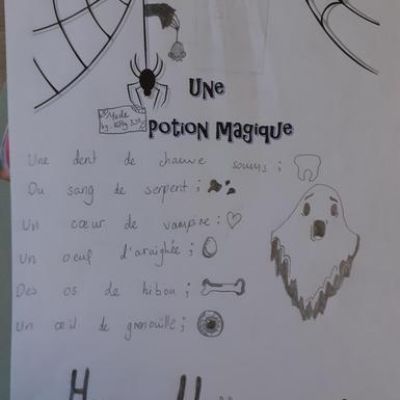 UNe
POTION MAGIQUE
Made
by
Une dent de chauve souris ;
Du sang de serpent ;
Un cœur de vampire :
Un oeuf d'araignée ;
Des os de hibou ;
Un œil de grenouille ;
H